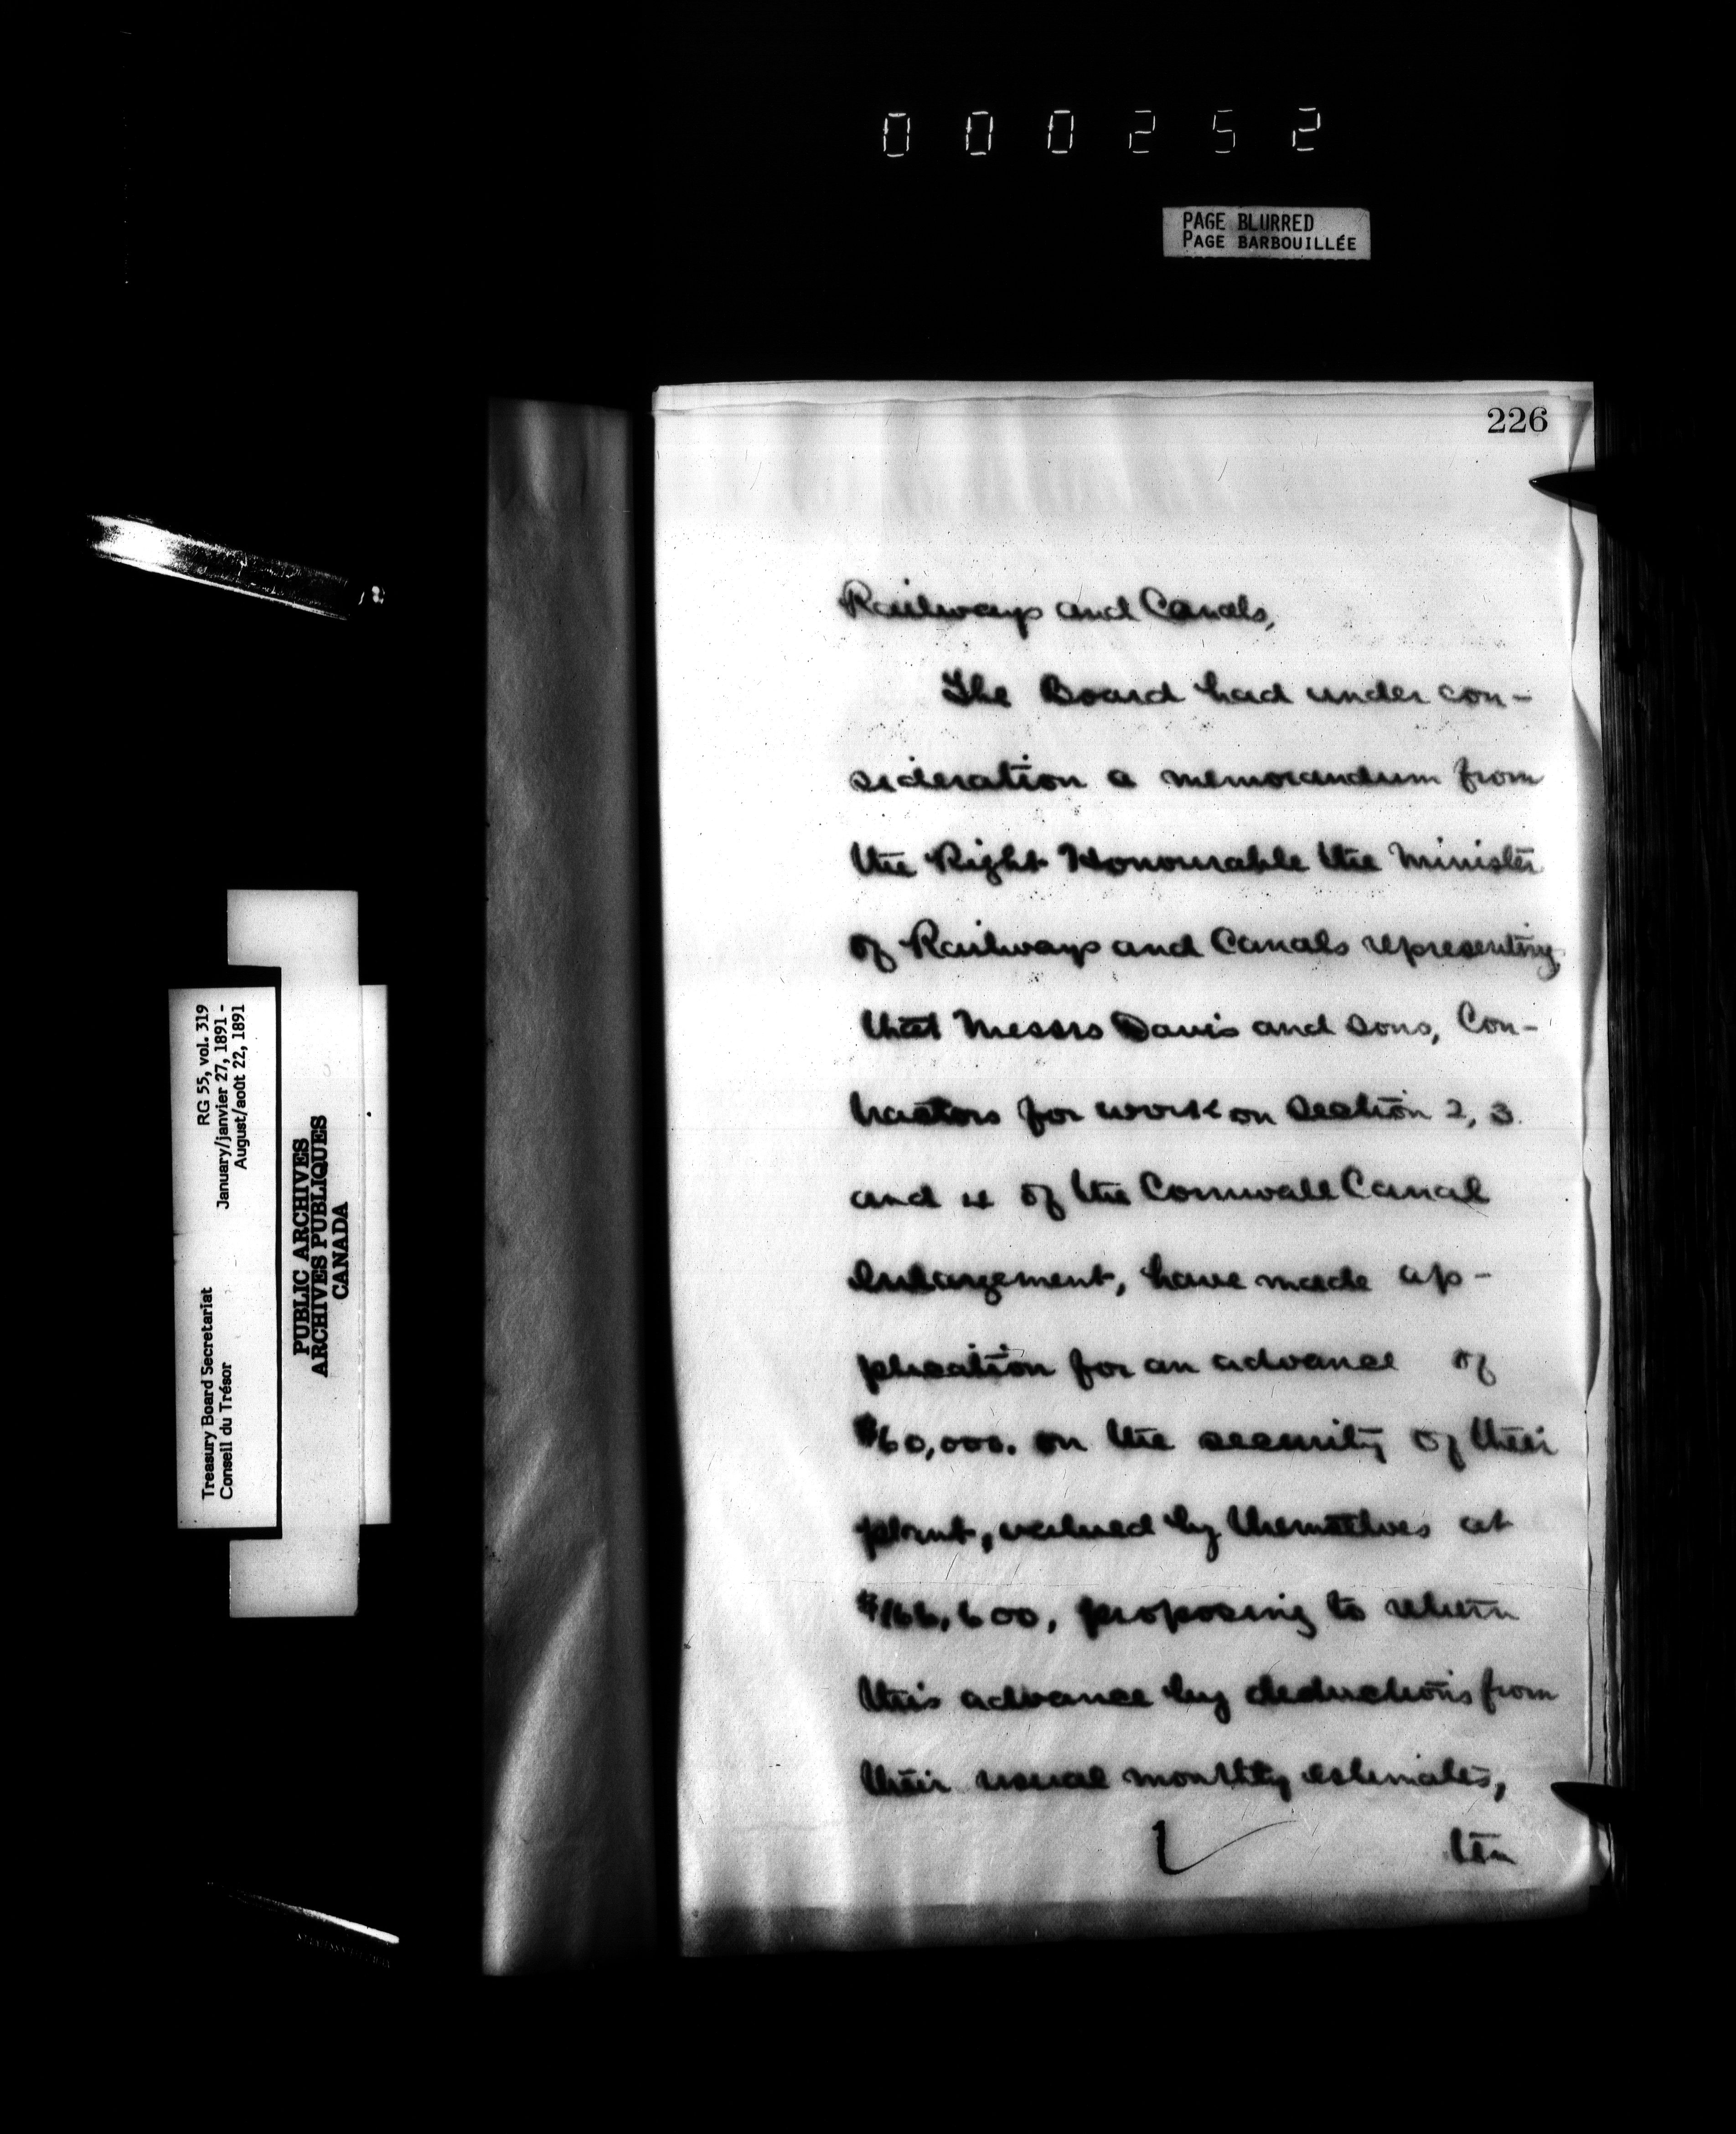 000252
PAGE BLURRED
PAGE BARBOUILLÉE
226
Railways and Canals,
The Board had under con-
sideration a memorandum from
the Right Honourable the Minister
of Railways and Canals representing
that Messrs Davis and Sons, Con-
tractors for work on Section 2, 3
and 4 of the Cornwall Canal
Enlargement, have made ap-
plication for an advance of
$60,000. on the security of their
plant, valued by themselves at
$166,600, proposing to return
this advance by deductions from
their usual monthly estimates,
ten
RG 55, vol. 319
January/janvier 27, 1891 -
August/août 22, 1891
Treasury Board Secretariat
Conseil du Trésor
PUBLIC ARCHIVES
ARCHIVES PUBLIQUES
CANADA